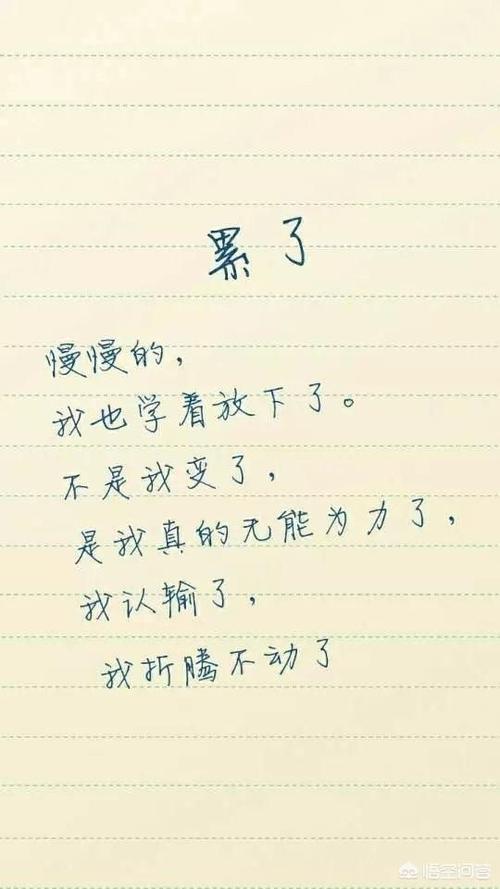 累了
慢慢的，
我也学着放下了。
不是我变了，
是我真的无能为力了，
我认输了，
我折腾不动了
悟空问答